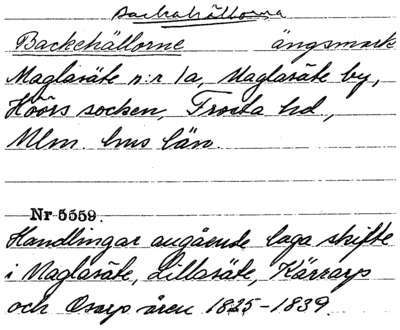 Backehällorna
Backehällorne ängsmark
Maglasäte n:r 1a, Maglasäte by,
Höörs socken, Frosta hd.,
Mlm. hus län.
Nr 5559.
Handlingar angående laga skifte
i Maglasäte, Lillasäte, Kärrarp
och Osarp åren 1825-1839